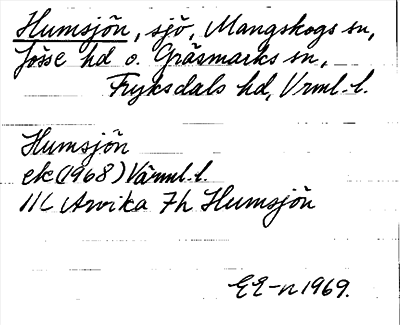 Humsjön, sjö, Mangskogs sn,
Jösse hd o. Gräsmarks sn,
Fryksdals hd, Vrml. l.
Humsjön
ek (1968) Värml. l.
11C Arvika 7h Humsjön
EE-n 1969.